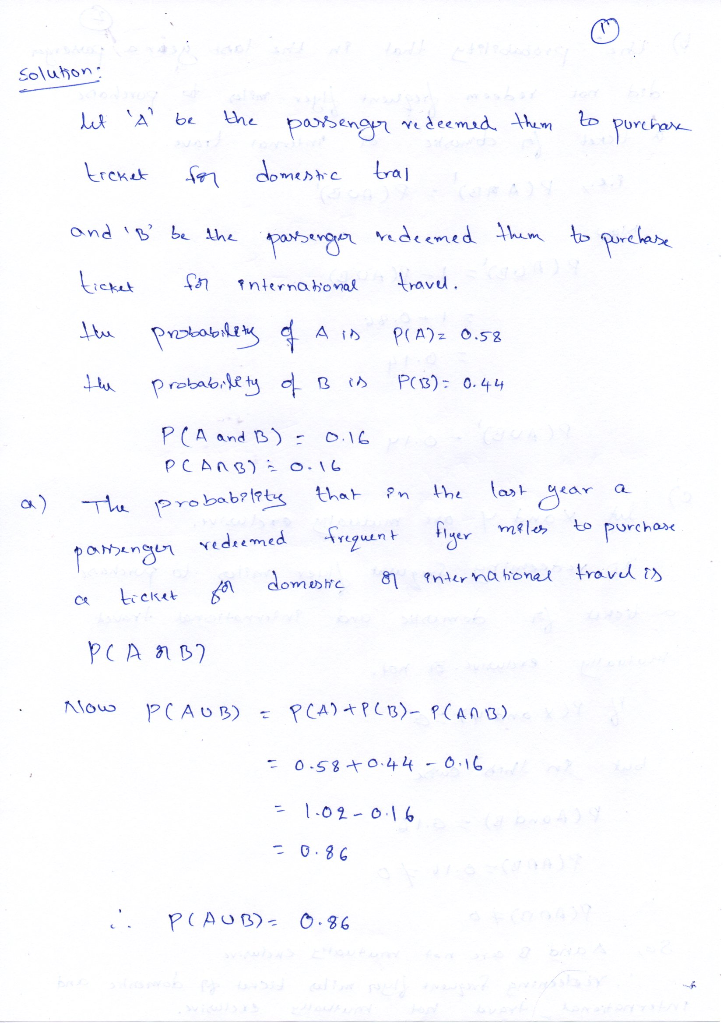 1
Solution:
Let 'A' be the passenger redeemed them to purchase
ticket for domestic tral
and 'B' be the passenger redeemed them to purchase
ticket for international travel.
the probability of A is P(A)= 0.58
the probability of B is P(B)= 0.44
P(A and B) = 0.16
P(A∩B) = 0.16
a) The probability that in the last year a
passenger redeemed frequent flyer miles to purchase
a ticket for domestic or international travel is
P(A or B)
Now P(A∪B) = P(A)+P(B)-P(A∩B)
= 0.58+0.44-0.16
= 1.02-0.16
= 0.86
∴ P(A∪B)= 0.86